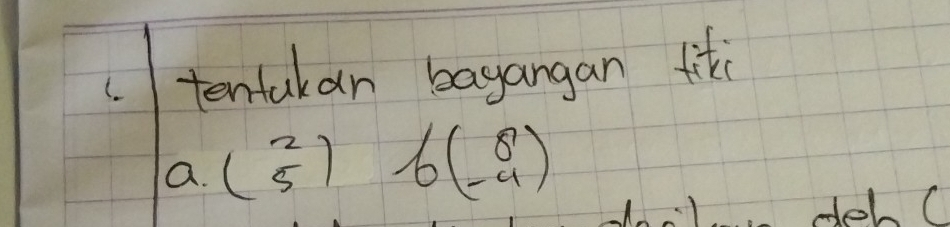 1. tentukan bayangan titi
a. ( 2 5 ) b ( 8 -4 )
deh (